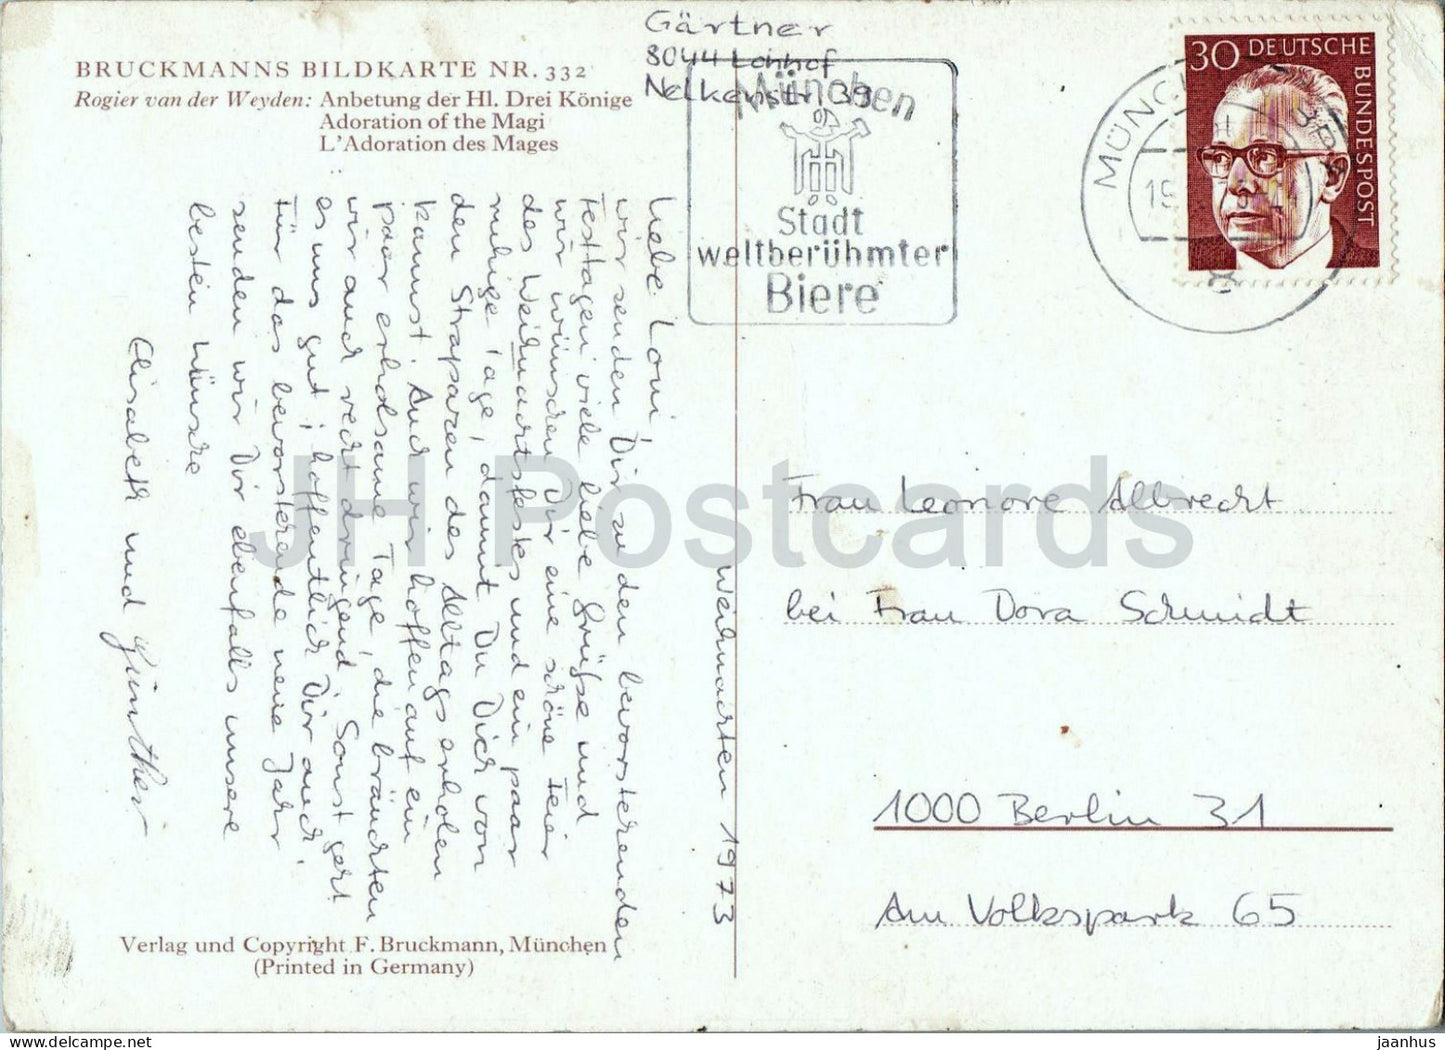 Gärtner
8044 Lohhof
Nelkenstr. 39
BRUCKMANNS BILDKARTE NR. 332
Rogier van der Weyden: Anbetung der Hl. Drei Könige
Adoration of the Magi
L'Adoration des Mages
München
Stadt
weltberühmter
Biere
30 DEUTSCHE
BUNDESPOST
MÜNCH
Liebe Loni,
wir senden Dir zu den bevorstehenden
Festtagen viele liebe Grüße und
wir wünschen Dir eine schöne Feier
des Weihnachtsfestes und ein paar
ruhige Tage, damit Du Dich von
den Strapazen des Alltags erholen
kannst. Auch wir hoffen auf ein
paar erholsame Tage, die bräuchten
wir auch recht dringend. Sonst geht
es uns gut, hoffentlich Dir auch.
Für das bevorstehende neue Jahr
senden wir Dir ebenfalls unsere
besten Wünsche
Elisabeth und Günther
Weihnachten 1973
Frau Leonore Albrecht
bei Frau Dora Schmidt
1000 Berlin 31
Am Volkspark 65
Verlag und Copyright F. Bruckmann, München
(Printed in Germany)
JH Postcards
jaanhus / delcampe.net